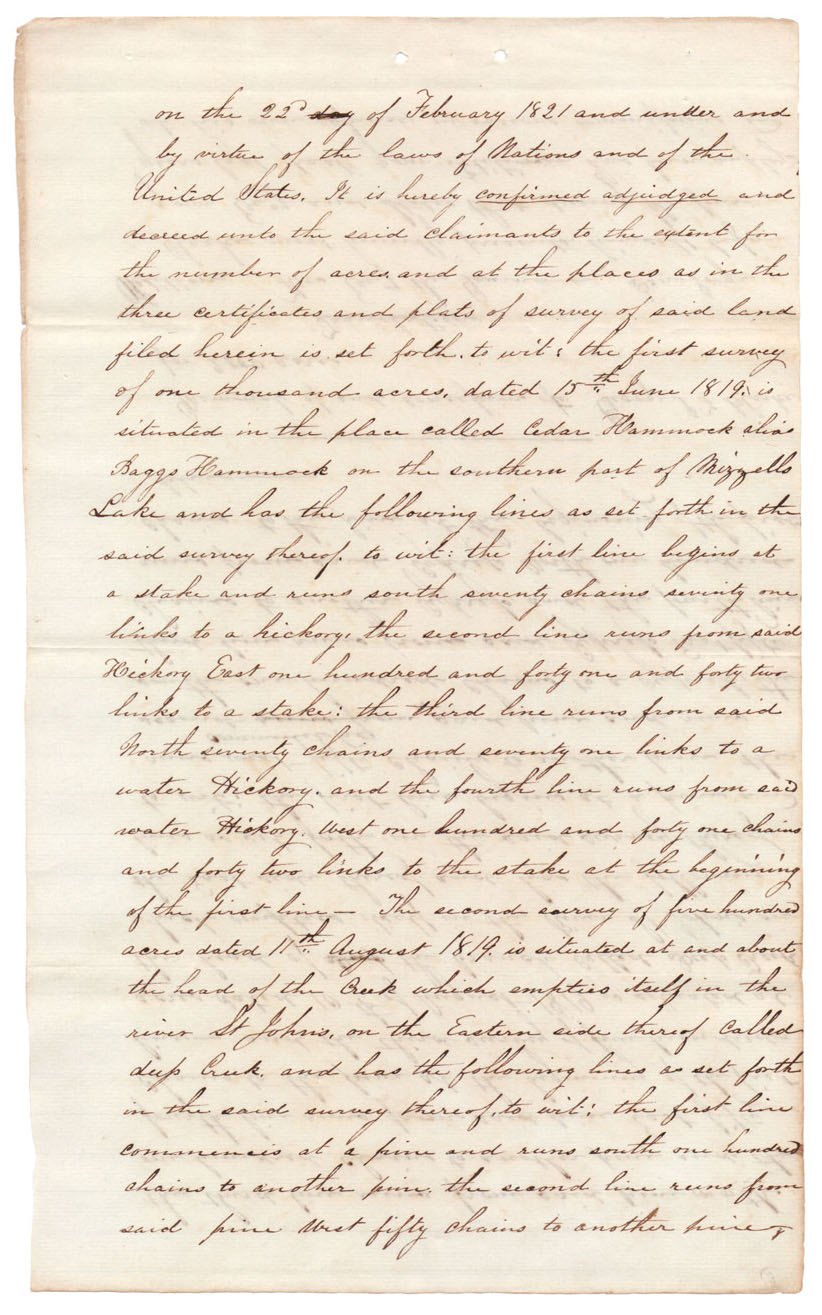 on the 22d day of February 1821 and under and
by virtue of the laws of Nations and of the
United States. It is hereby confirmed adjudged and
decreed unto the said claimants to the extent for
the number of acres, and at the places as in the
three certificates and plats of survey of said land
filed herein is set forth. to wit: the first survey
of one thousand acres. dated 15th June 1819. is
situated in the place called Cedar Hammock alias
Baggs Hammock on the southern part of Mizzells
Lake and has the following lines as set forth in the
said survey thereof. to wit: the first line begins at
a stake and runs south seventy chains seventy one
links to a hickory. the second line runs from said
Hickory East one hundred and forty one and forty two
links to a stake: the third line runs from said
North seventy chains and seventy one links to a
water Hickory. and the fourth line runs from said
water Hickory. West one hundred and forty one chains
and forty two links to the stake at the beginning
of the first line — The second survey of five hundred
acres dated 11th August 1819. is situated at and about
the head of the Creek which empties itself in the
river St Johns, on the Eastern side thereof called
deep Creek. and has the following lines as set forth
in the said survey thereof. to wit: the first line
commences at a pine and runs south one hundred
chains to another pine. the second line runs from
said pine West fifty chains to another pine